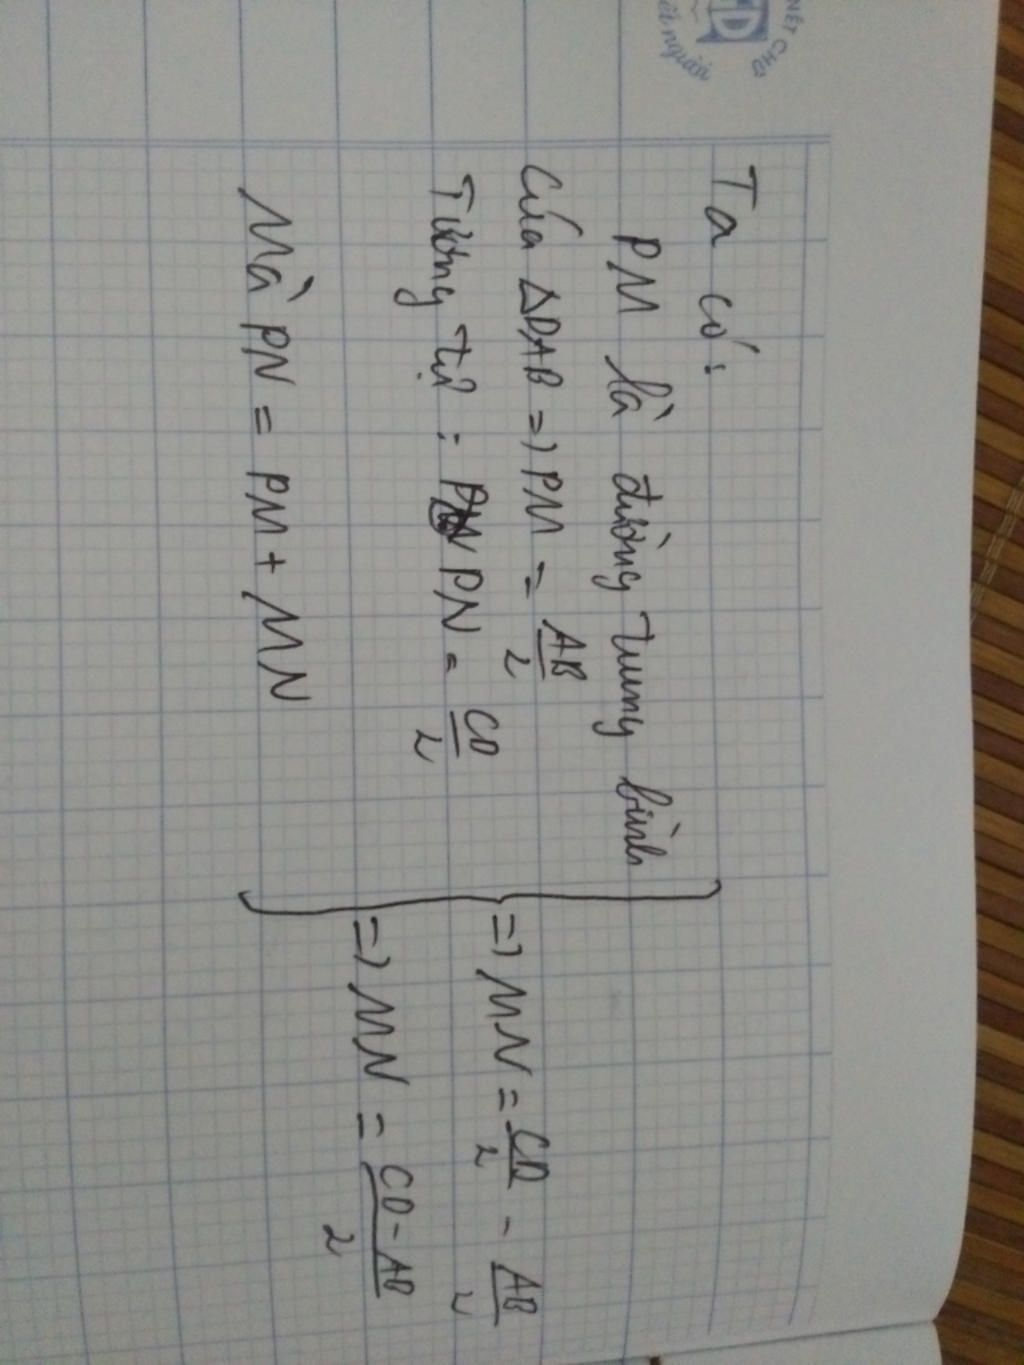 NÉT CHỮ
nết người
Ta có:
PM là đường trung bình
Của ΔDAB => PM = AB/2
Tương tự : PN = CD/2
Mà PN = PM + MN
=> MN = CD/2 - AB/2
=> MN = CD-AB/2